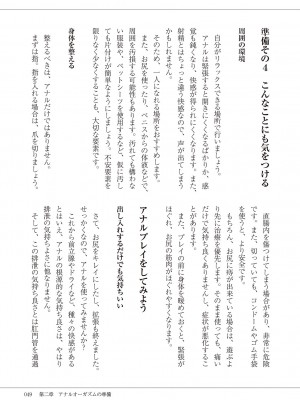 準備その4 こんなことにも気をつける
周囲の環境
自分がリラックスできる場所で行いましょう。
アナルは緊張すると開きにくくなるばかりか、感
覚も鈍くなり、快感が得られにくくなります。また、
射精とはちょっと違う快感なので、声が出てしまう
かもしれません。
そのため、一人になれる場所をおすすめします。
また、お尻を使ったり、ペニスからの体液などで、
周囲を汚損する可能性もあります。汚れても構わな
い服装や、ペットシーツを使用するなど、仮に汚して
も片付けが簡単になるようにしましょう。不安要素を
限りなく少なくすることも、大切な要素です。
身体を整える
整えるべきは、アナルだけではありません。
まずは指。指を入れる場合は、爪を切りましょう。
直腸内を傷つけてしまう場合があり、非常に危険
です。また、切っていても、コンドームやゴム手袋
を使うと、より安全です。
もちろん、お尻に痔が出来ている場合は、遊ぶよ
り先に治療を優先します。そのまま使っても、痛い
だけで気持ち良くありませんし、症状が悪化するこ
とがあります。
また、プレイの前に身体を暖めておくと、緊張が
ほぐれ、お尻の筋肉がほぐれやすくなります。
アナルプレイをしてみよう
出し入れするだけでも気持ちいい
さて、お尻をキレイにしたし、拡張も終えました。
せっかくなので、アナルを使ってみませんか?
これから前立腺やドライなど、種々の快感がある
とはいえ、アナルの根源的な気持ち良さは、やはり
排泄の気持ちよさに他なりません。
そして、この排泄の気持ち良さとは肛門管を通過
049 第二章 アナルオーガズムの準備